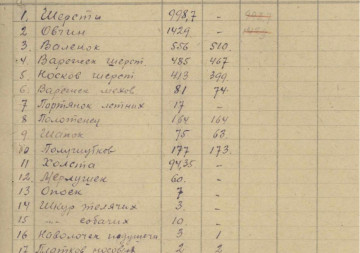 1. Шерсти 998,7 -
2 Овчин 1429 -
3. Валенок 556 510.
4 Варежек шерст 485 467
5. Носков шерст 413 399
6 Варежек мехов 81 74
7 Портянок летних 17 -
8 Полотенец 164 164
9 Шапок 75 68.
10 Полушубков 177 173.
11 Холста 94,35 -
12. Мерлушек 60. -
13 Опоек 7 -
14 Шкур телячих 3. -
15 -"- собачих 10. -
16 Наволочек 3 1
17 Платков носовых 2 2